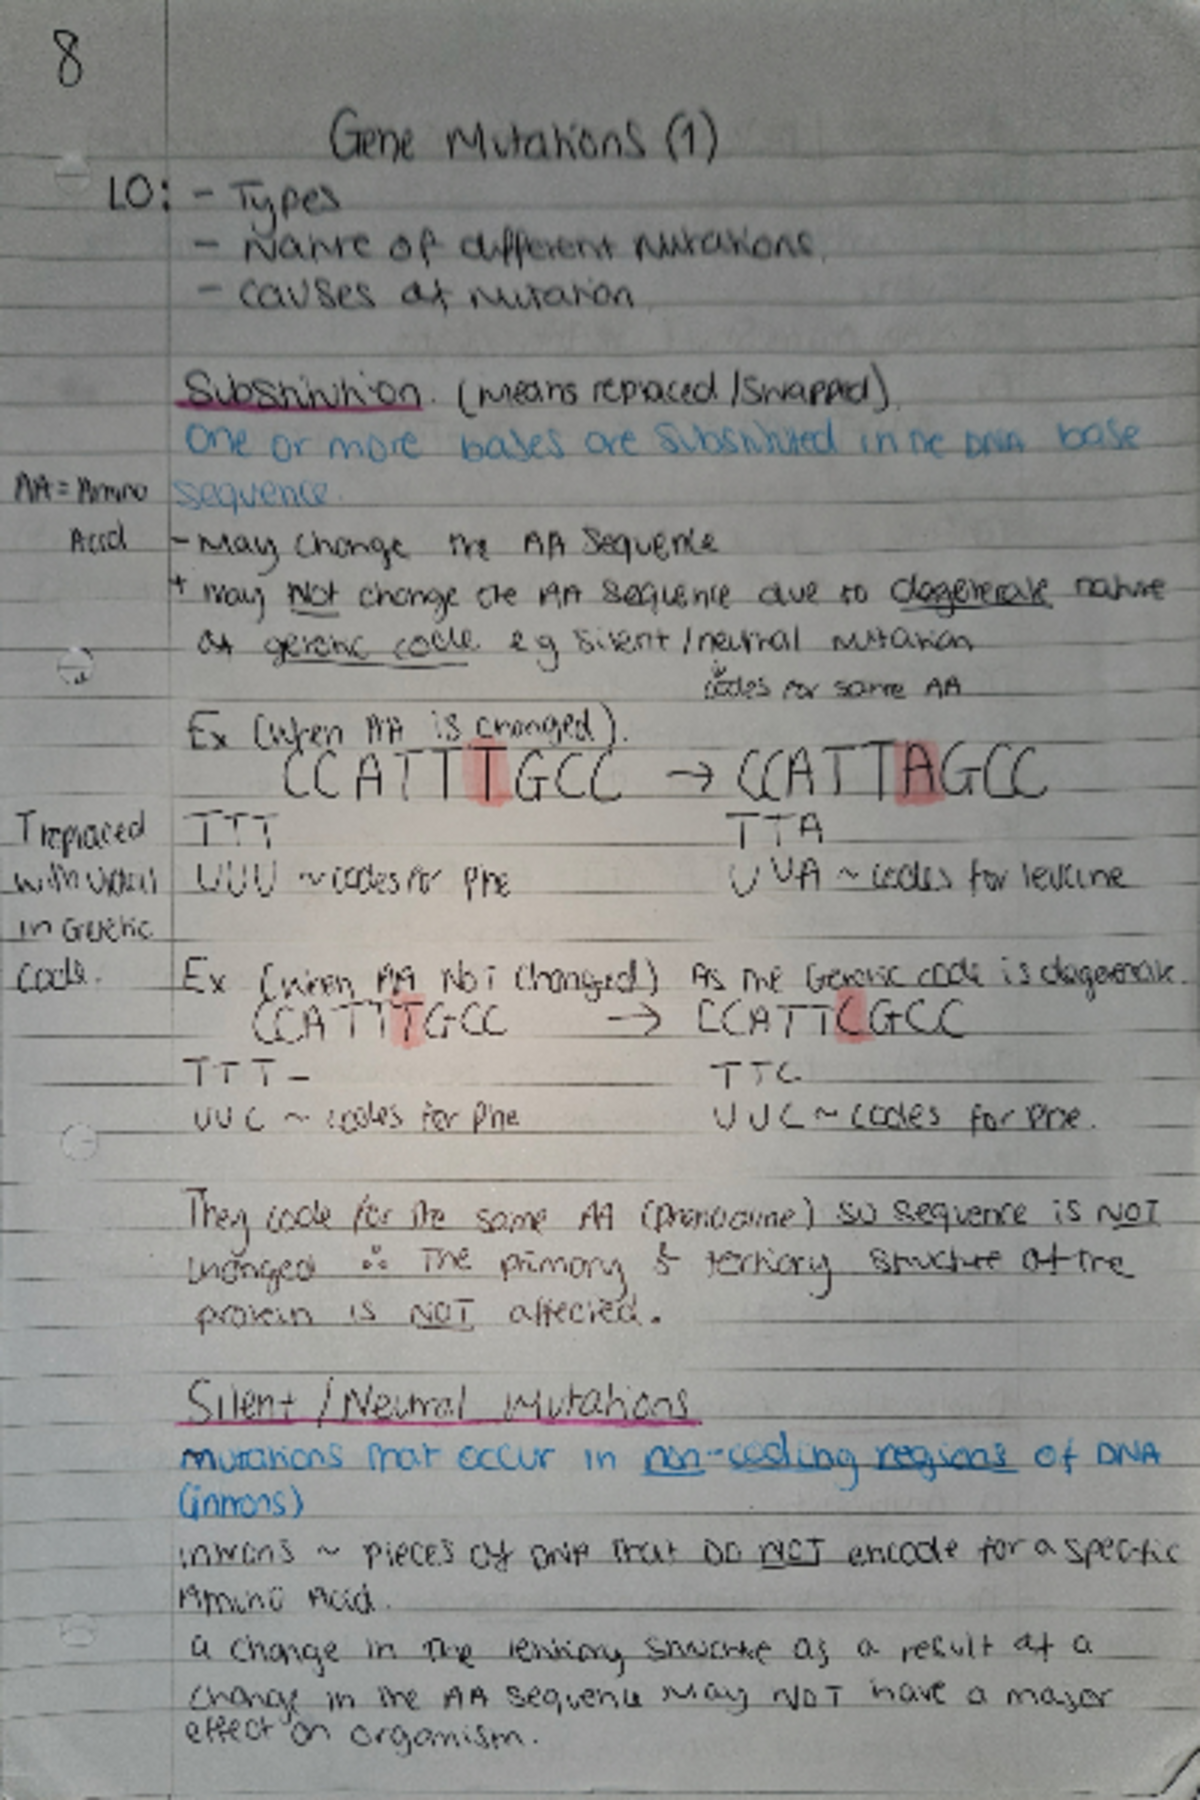 8
Gene Mutations (1)
LO: - Types
- Nature of different mutations.
- causes of mutation.
Substitution. (means replaced/swapped).
One or more bases are substituted in the DNA base
AA = Amino Acid
sequence.
- may change the AA sequence
+ may Not change the AA sequence due to degenerate nature
of genetic code e.g silent/neutral mutation
codes for same AA
Ex (when AA is changed).
CCATTTGCC → CCATTAGCC
T replaced with uracil in Genetic code.
TTT TTA
UUU ~ codes for Phe UUA ~ codes for leucine
Ex (when AA NOT changed) As the Genetic code is degenerate.
CCATTTGCC → CCATTCGCC
TTT - TTC
UUC ~ codes for Phe UUC ~ codes for Phe.
They code for the same AA so sequence is NOT
changed ∴ The primary & tertiary structure of the
protein is NOT affected.
Silent / Neutral Mutations
mutations that occur in non-coding regions of DNA
(introns)
introns ~ pieces of DNA that DO NOT encode for a specific
Amino Acid.
a change in the tertiary structure as a result of a
change in the AA sequence may NOT have a major
effect on organism.